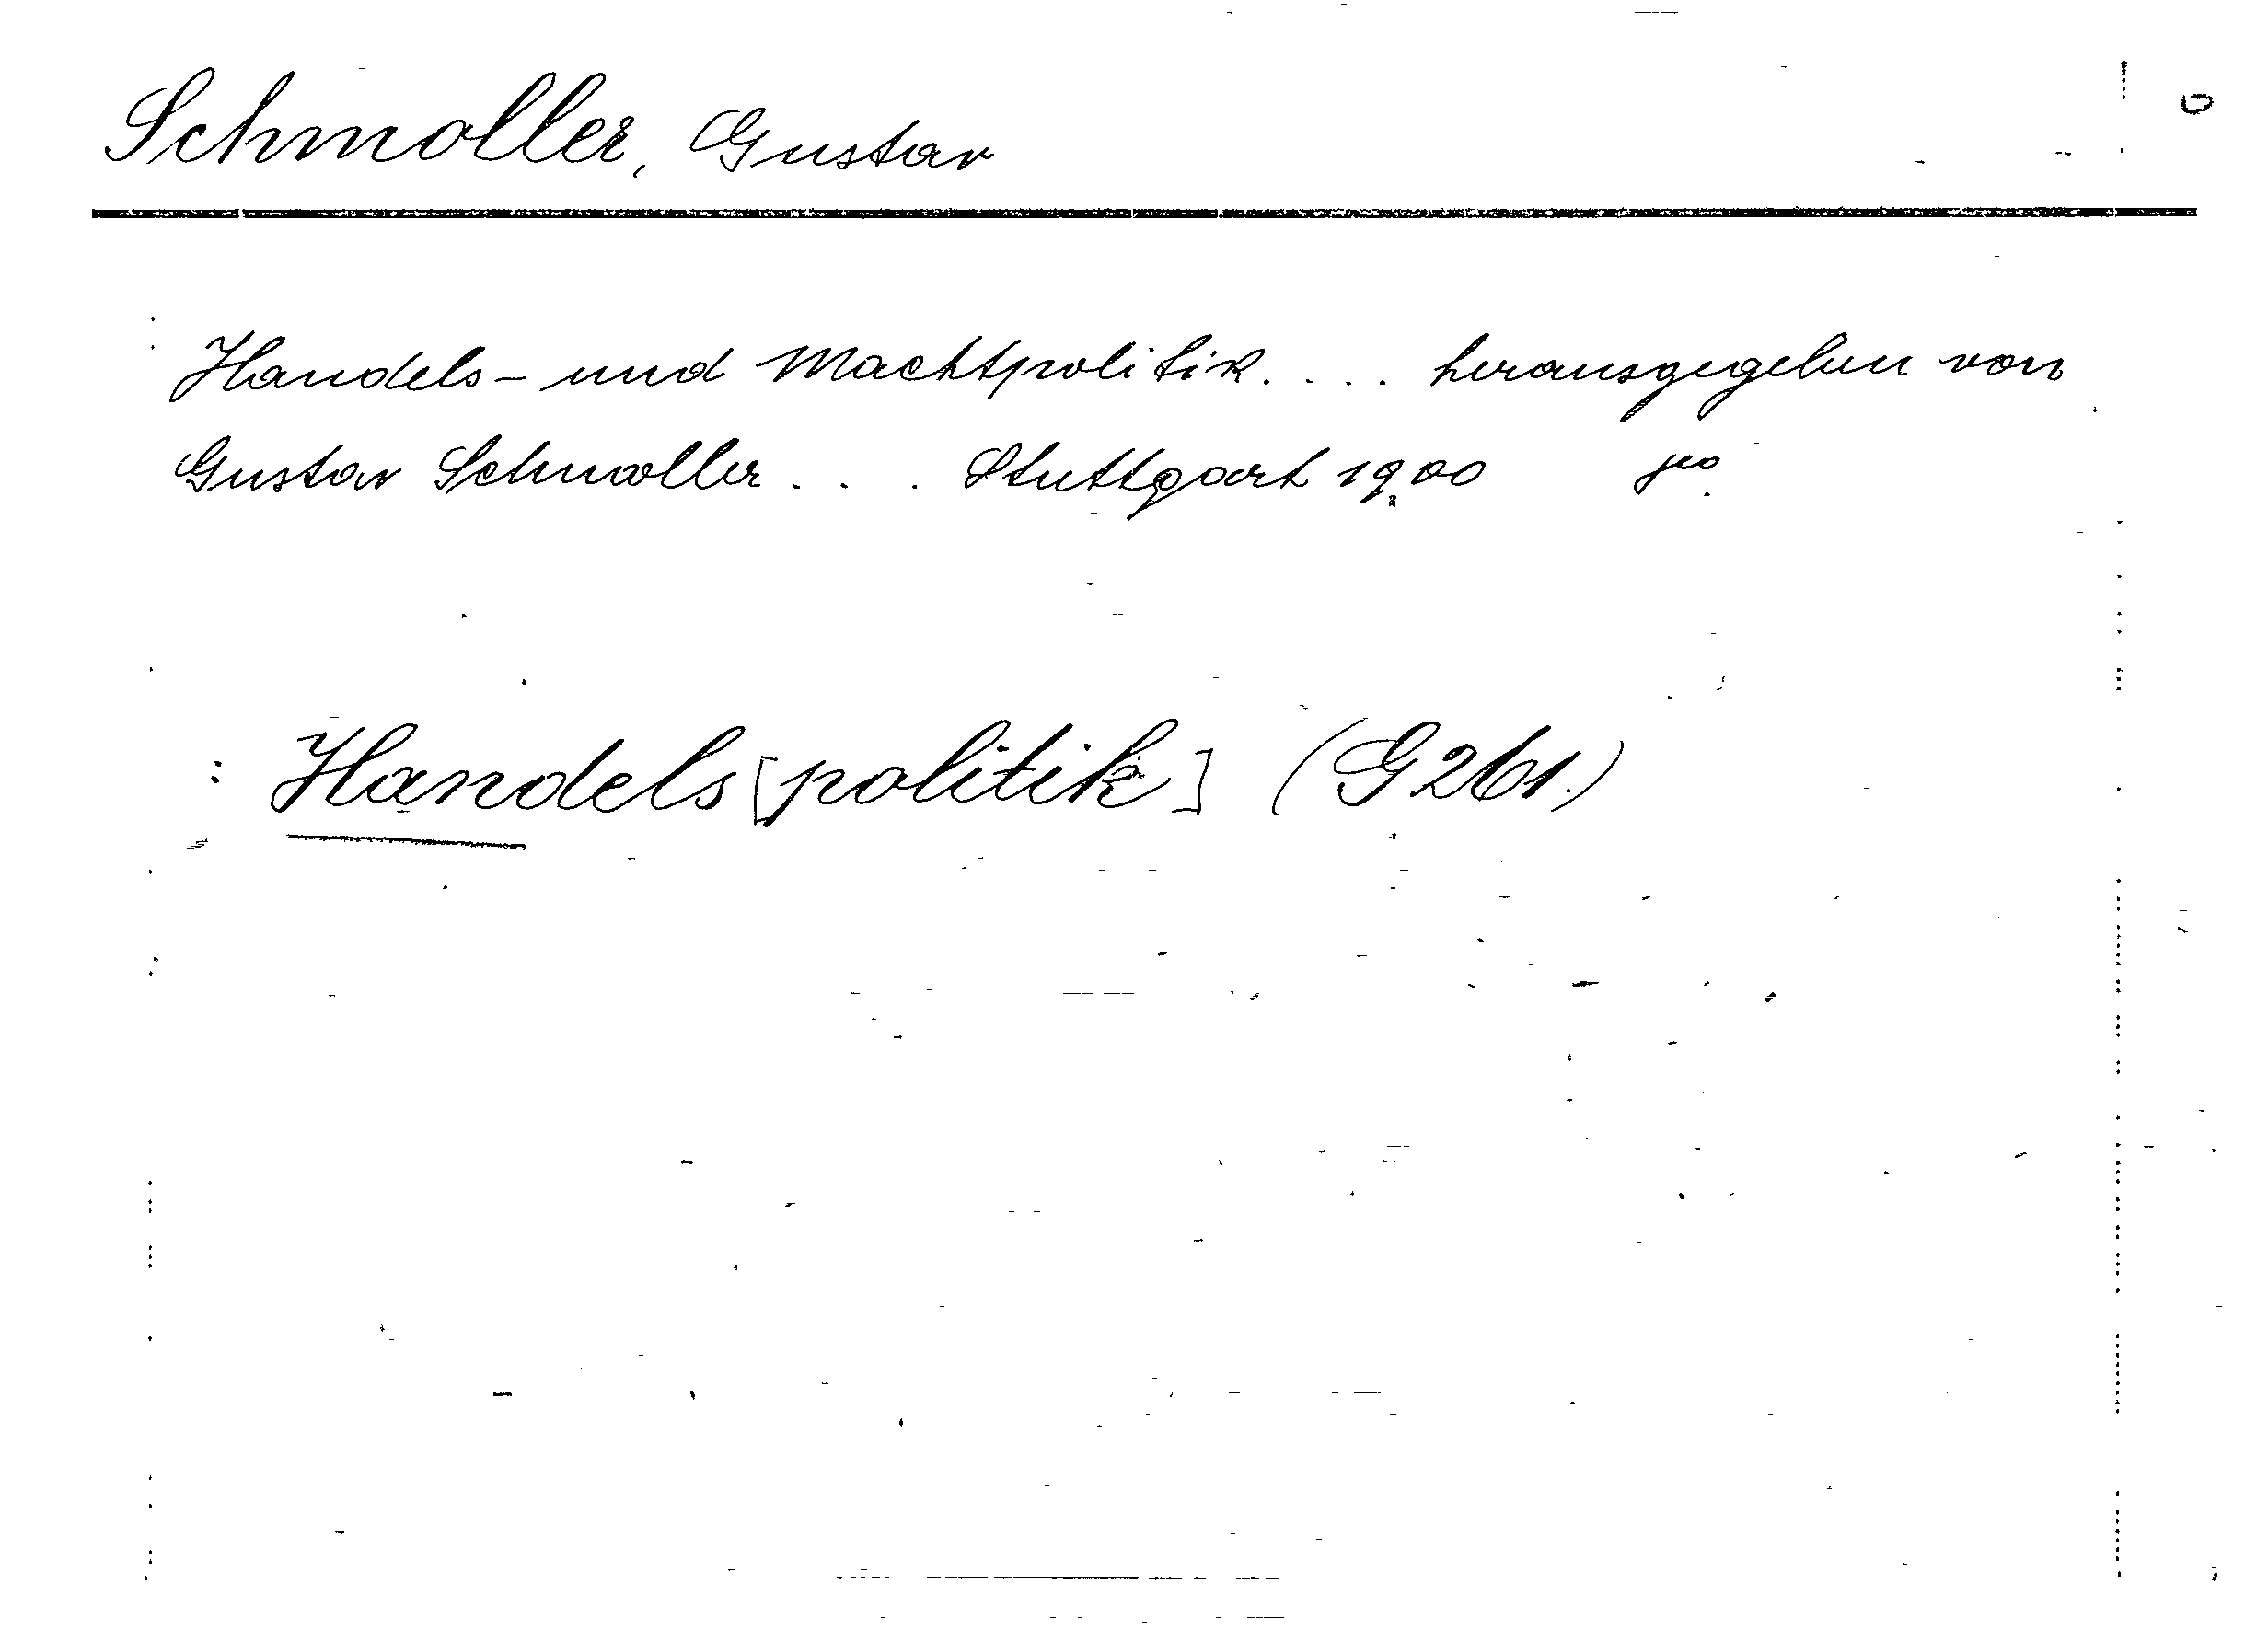 Schmoller, Gustav
Handels- und Machtpolitik. ... herausgegeben von
Gustav Schmoller ... Stuttgart 1900
: Handels[politik] (G261.)